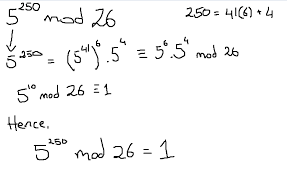 5^250 mod 26 250 = 41(6) + 4
↓
5^250 = (5^41)^6 . 5^4 ≡ 5^6 . 5^4 mod 26
5^10 mod 26 ≡ 1
Hence,
5^250 mod 26 = 1